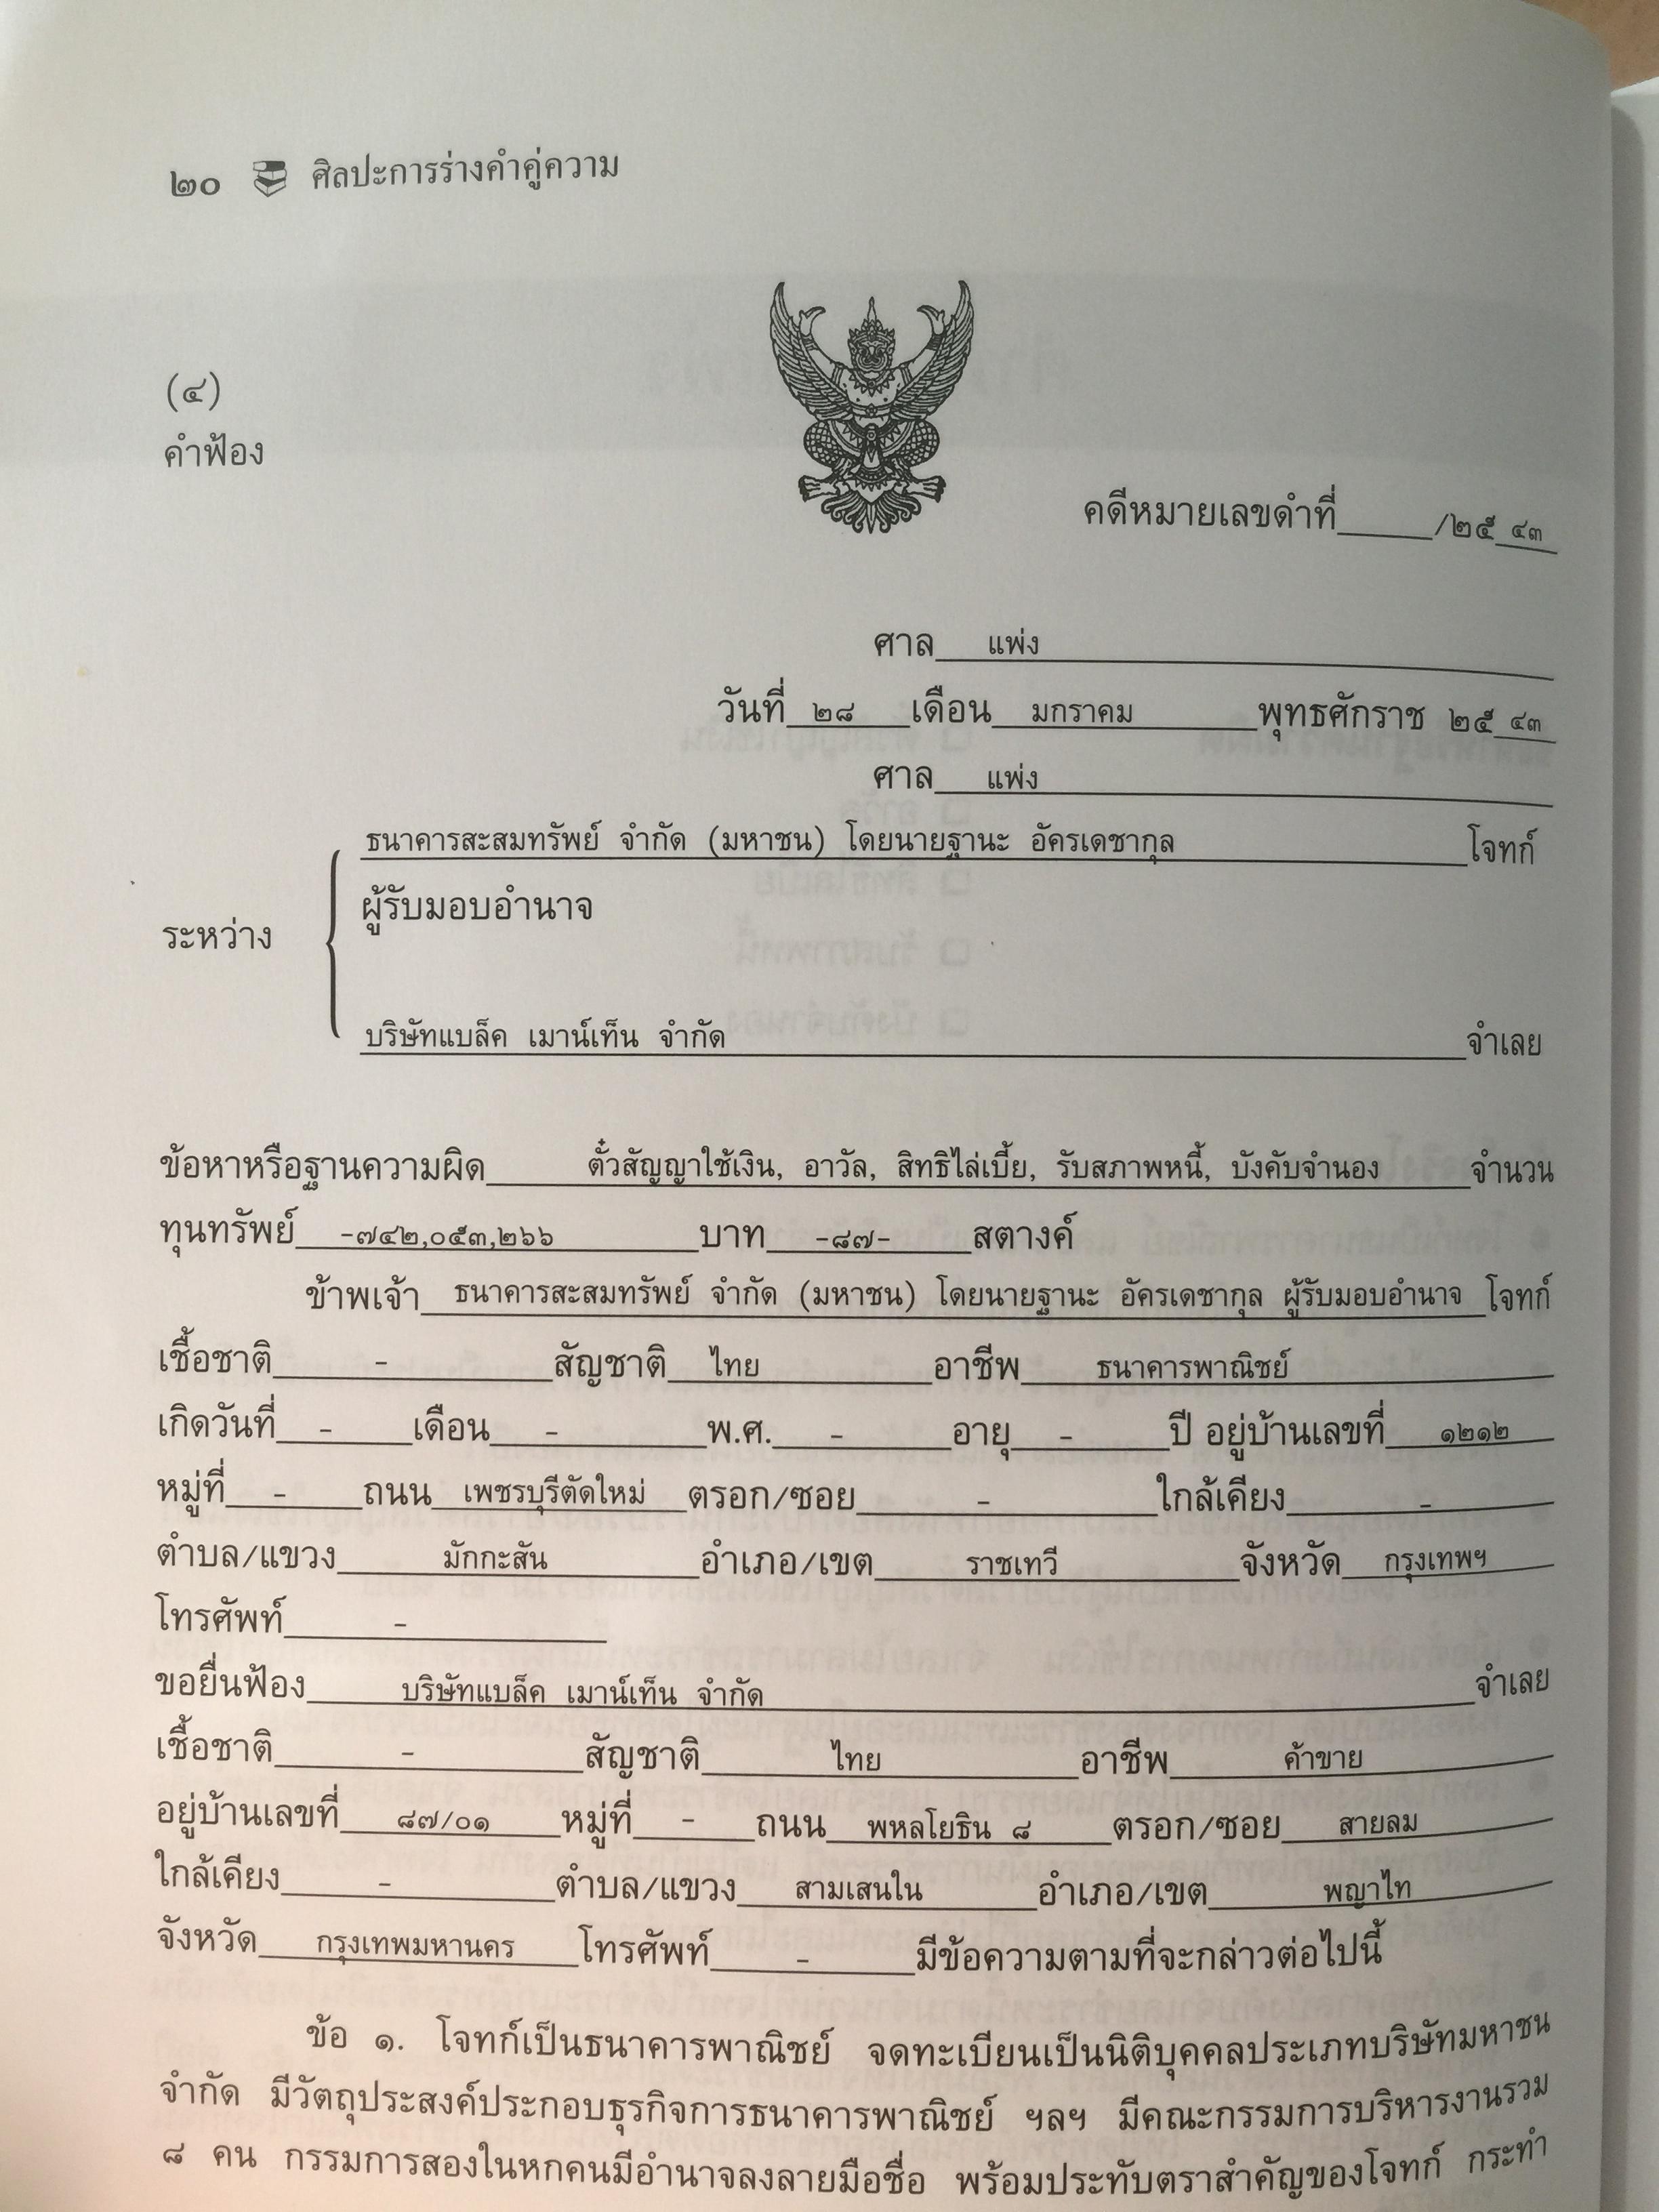 ๒๐ ศิลปะการร่างคำคู่ความ
(๔)
คำฟ้อง
คดีหมายเลขดำที่ /๒๕ ๔๓
ศาล แพ่ง
วันที่ ๒๘ เดือน มกราคม พุทธศักราช ๒๕ ๔๓
ศาล แพ่ง
ธนาคารสะสมทรัพย์ จำกัด (มหาชน) โดยนายฐานะ อัครเดชากุล โจทก์
ผู้รับมอบอำนาจ
ระหว่าง
บริษัทแบล็ค เมาน์เท็น จำกัด จำเลย
ข้อหาหรือฐานความผิด ตั๋วสัญญาใช้เงิน, อาวัล, สิทธิไล่เบี้ย, รับสภาพหนี้, บังคับจำนอง จำนวน
ทุนทรัพย์ -๗๔๒,๐๕๓,๒๖๖ บาท -๘๗- สตางค์
ข้าพเจ้า ธนาคารสะสมทรัพย์ จำกัด (มหาชน) โดยนายฐานะ อัครเดชากุล ผู้รับมอบอำนาจ โจทก์
เชื้อชาติ - สัญชาติ ไทย อาชีพ ธนาคารพาณิชย์
เกิดวันที่ - เดือน - พ.ศ. - อายุ - ปี อยู่บ้านเลขที่ ๑๒๑๒
หมู่ที่ - ถนน เพชรบุรีตัดใหม่ ตรอก/ซอย - ใกล้เคียง -
ตำบล/แขวง มักกะสัน อำเภอ/เขต ราชเทวี จังหวัด กรุงเทพฯ
โทรศัพท์ -
ขอยื่นฟ้อง บริษัทแบล็ค เมาน์เท็น จำกัด จำเลย
เชื้อชาติ - สัญชาติ ไทย อาชีพ ค้าขาย
อยู่บ้านเลขที่ ๘๗/๐๑ หมู่ที่ - ถนน พหลโยธิน ๘ ตรอก/ซอย สายลม
ใกล้เคียง - ตำบล/แขวง สามเสนใน อำเภอ/เขต พญาไท
จังหวัด กรุงเทพมหานคร โทรศัพท์ - มีข้อความตามที่จะกล่าวต่อไปนี้
ข้อ ๑. โจทก์เป็นธนาคารพาณิชย์ จดทะเบียนเป็นนิติบุคคลประเภทบริษัทมหาชน
จำกัด มีวัตถุประสงค์ประกอบธุรกิจการธนาคารพาณิชย์ ฯลฯ มีคณะกรรมการบริหารงานรวม
๘ คน กรรมการสองในหกคนมีอำนาจลงลายมือชื่อ พร้อมประทับตราสำคัญของโจทก์ กระทำ